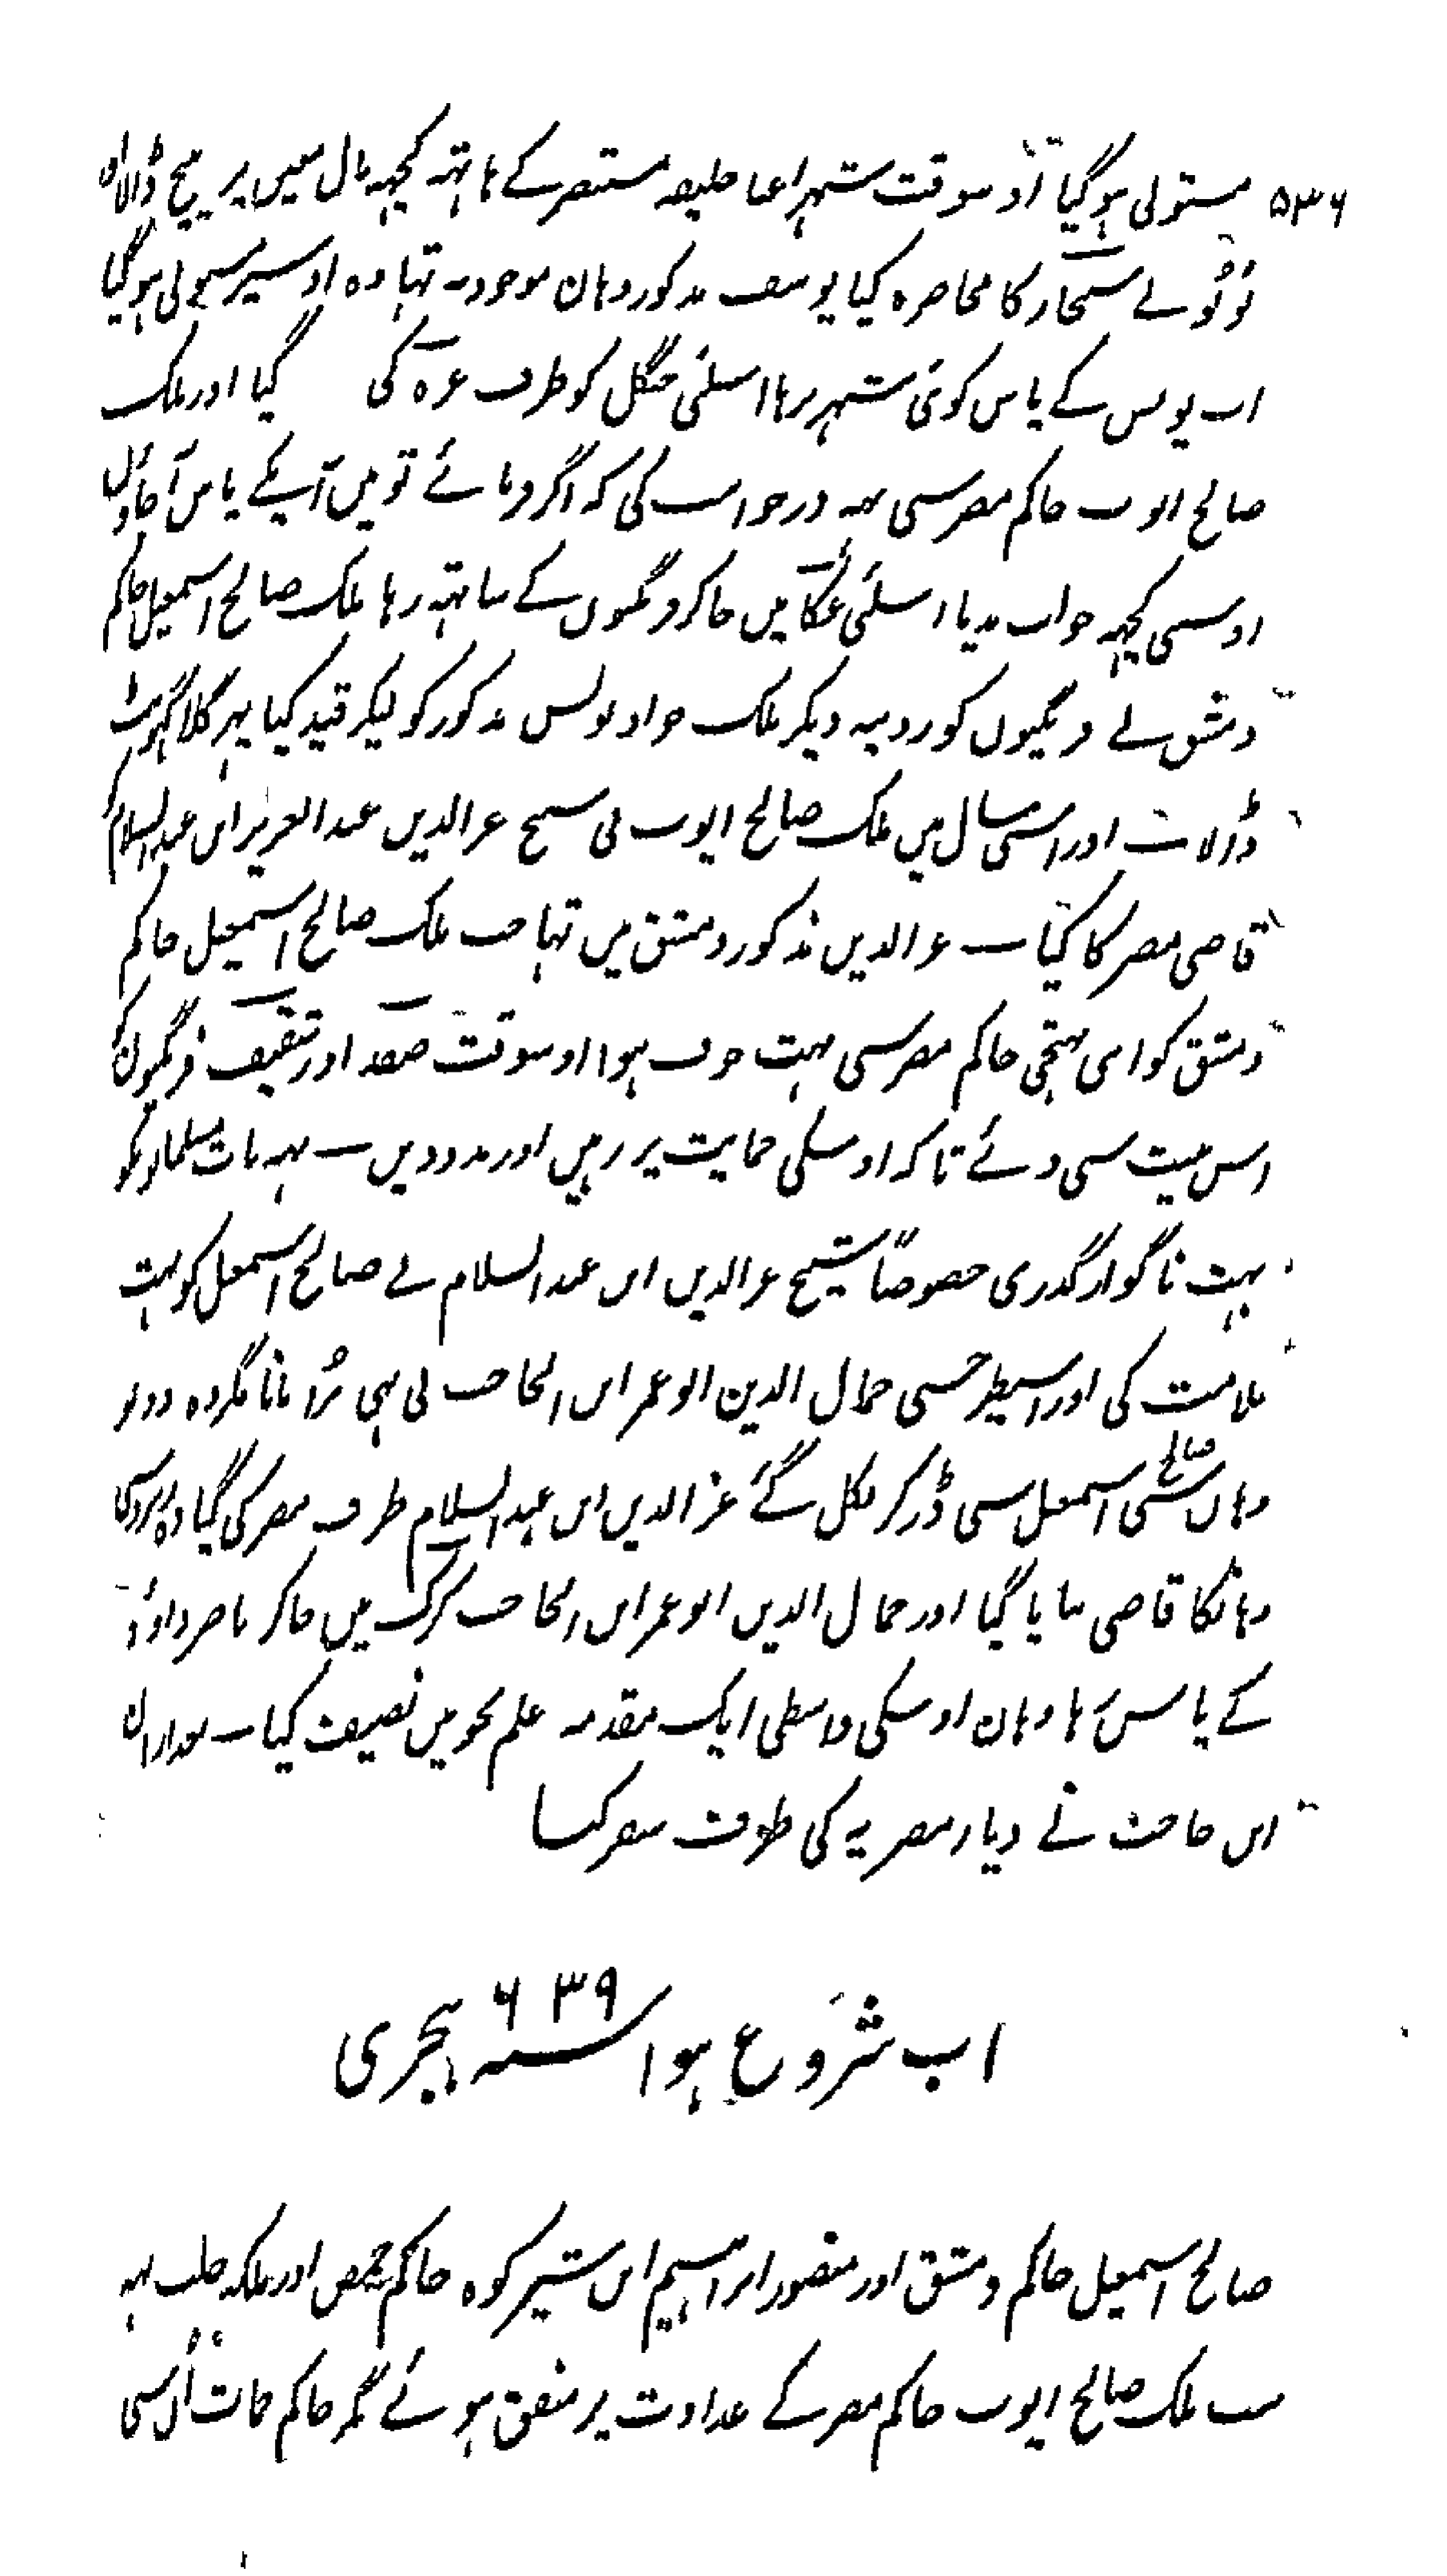 ۵۳۶ مستولی ہوگیا اوسوقت شہر اعا خلیفہ مستنصر کے ہاتہہ کچہہ مال معین پر بیچ ڈالا
لؤلؤ نے سنجار کا محاصرہ کیا یوسف مذکور وہان موجود نہ تہا وہ اوسپر مستولی ہوگیا
اب یونس کے پاس کوئی شہر نرہا اسلئی جنگل کو طرف عزہ کی گیا اور ملک
صالح ایوب حاکم مصر سی یہہ درخواست کی کہ اگر فرمائے تو میں آپکے پاس آجاؤں
اوسی کچہہ جواب ندیا اسلئی عکا میں جاکر فرنگیوں کے ساتہہ رہا ملک صالح اسمعیل حاکم
دمشق نے فرنگیوں کو روپیہ دیکر ملک جواد یونس مذکور کو لیکر قید کیا پہر گلا گہونٹ
ڈالا ۔ اور اسی سال میں ملک صالح ایوب نی شیخ عزالدین عبدالعزیز ابن عبدالسلام کو
قاضی مصر کا کیا ۔ عزالدین مذکور دمشق میں تہا جب ملک صالح اسمعیل حاکم
دمشق کو اپنی بہتیجی حاکم مصر سی بہت خوف ہوا اوسوقت صفد اور شقیف فرنگیون کو
اس نیت سی دئے تاکہ اوسکی حمایت پر رہیں اور مدد دیں ۔ یہہ بات مسلمانونکو
بہت ناگوار گذری خصوصاً شیخ عزالدین ابن عبدالسلام نے صالح اسمعیل کو بہت
ملامت کی اور اسیطرحسی جمال الدین ابو عمر ابن الحاجب نی بہی بُرا مانا مگر وہ دونو
وہاں سی صالح اسمعیل سی ڈر کر نکل گئے عزالدین ابن عبدالسلام طرف مصر کی گیا
وہانکا قاضی بنایا گیا اور جمال الدین ابو عمر ابن الحاجب کرک میں جاکر ناصر داؤد
کے پاس رہا وہان اوسکی واسطی ایک مقدمہ علم نحو میں تصنیف کیا ۔ بعد ازان
ابن حاجب نے دیار مصریہ کی طرف سفر کیا
اب شروع ہوا سنہ ۶۳۹ ہجری
صالح اسمعیل حاکم دمشق اور منصور ابراہیم ابن شیرکوہ حاکم حمص اور ملکہ حلب یہہ
سب ملک صالح ایوب حاکم مصر کے عداوت پر متفق ہوئے مگر حاکم حمات اُن سی